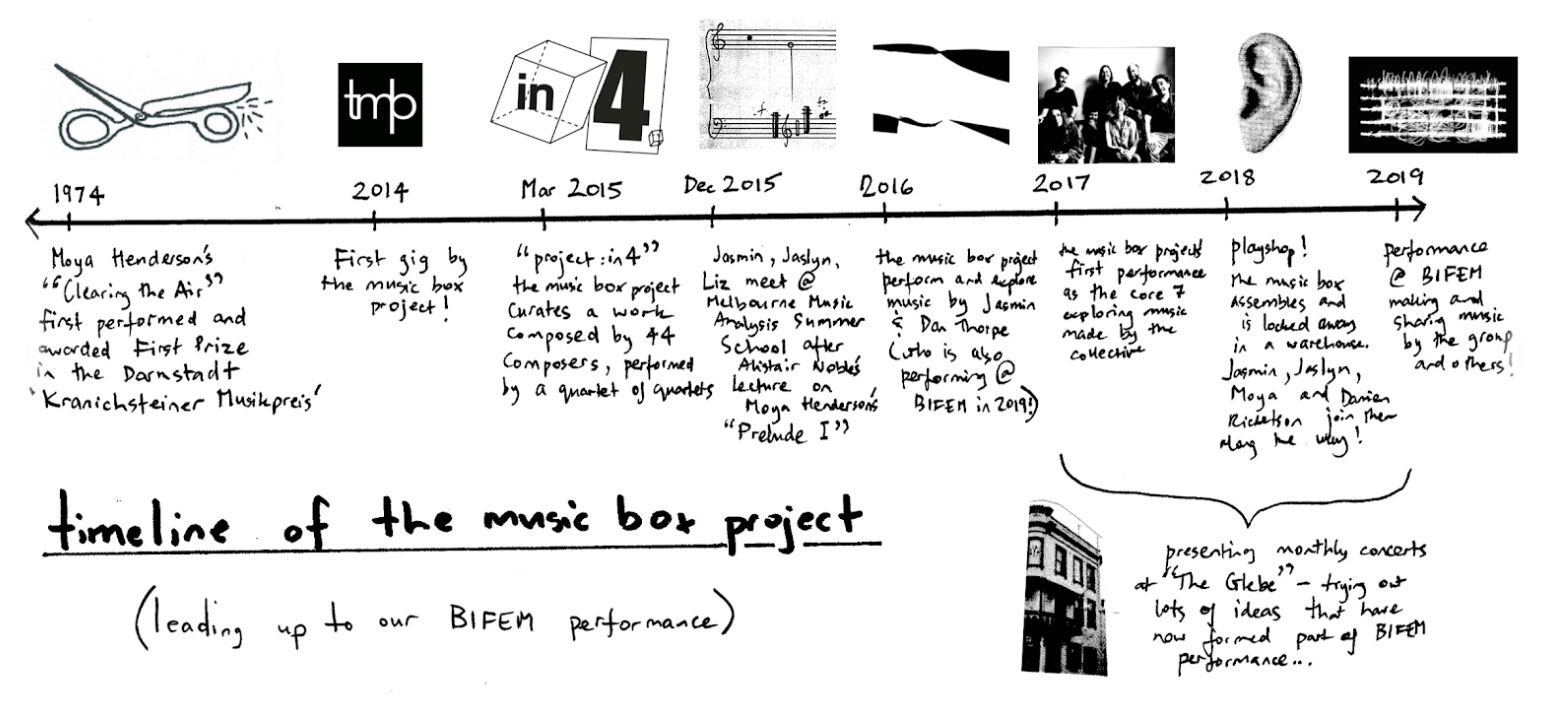 tmb
in
4
1974
Moya Henderson's
"Clearing the Air"
first performed and
awarded First Prize
in the Darmstadt
'Kranichsteiner Musikpreis'
2014
First gig by
the music box
project!
Mar 2015
"project:in4"
the music box project
curates a work
composed by 44
composers, performed
by a quartet of quartets
Dec 2015
Jasmin, Jaslyn,
Liz meet @
Melbourne Music
Analysis Summer
School after
Alistair Noble's
lecture on
Moya Henderson's
"Prelude I"
2016
the music box project
perform and explore
music by Jasmin
& Dan Thorpe
(who is also
performing @
BIFEM in 2019!)
2017
the music box project's
first performance
as the core 7
exploring music
made by the
collective
2018
playshop!
the music box
assembles and
is locked away
in a warehouse.
Jasmin, Jaslyn,
Moya and Damien
Ricketson join them
along the way!
2019
performance
@ BIFEM
making and
sharing music
by the group
and others!
presenting monthly concerts
at "The Glebe" – trying out
lots of ideas that have
now formed part of BIFEM
performance...
timeline of the music box project
(leading up to our BIFEM performance)